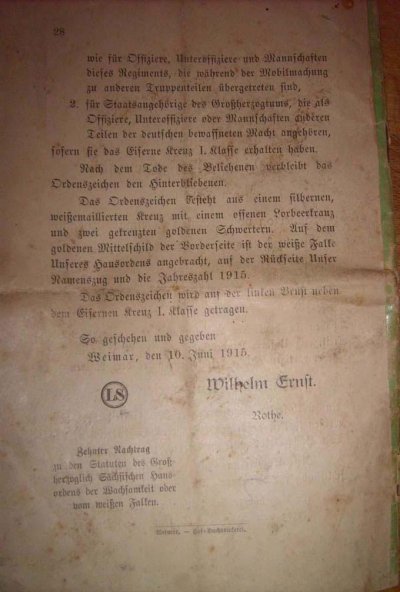 28
wie für Offiziere, Unteroffiziere und Mannschaften
dieses Regiments, die während der Mobilmachung
zu anderen Truppenteilen übergetreten sind,
2. für Staatsangehörige des Großherzogtums, die als
Offiziere, Unteroffiziere oder Mannschaften anderen
Teilen der deutschen bewaffneten Macht angehören,
sofern sie das Eiserne Kreuz I. Klasse erhalten haben.
Nach dem Tode des Beliehenen verbleibt das
Ordenszeichen den Hinterbliebenen.
Das Ordenszeichen besteht aus einem silbernen,
weißemaillierten Kreuz mit einem offenen Lorbeerkranz
und zwei gekreuzten goldenen Schwertern. Auf dem
goldenen Mittelschild der Vorderseite ist der weiße Falke
Unseres Hausordens angebracht, auf der Rückseite Unser
Namenszug und die Jahreszahl 1915.
Das Ordenszeichen wird auf der linken Brust neben
dem Eisernen Kreuz I. Klasse getragen.
So geschehen und gegeben
Weimar, den 10. Juni 1915.
LS
Wilhelm Ernst.
Rothe.
Zehnter Nachtrag
zu den Statuten des Groß-
herzoglich Sächsischen Haus-
ordens der Wachsamkeit oder
vom weißen Falken.
Weimar. — Hof-Buchdruckerei.